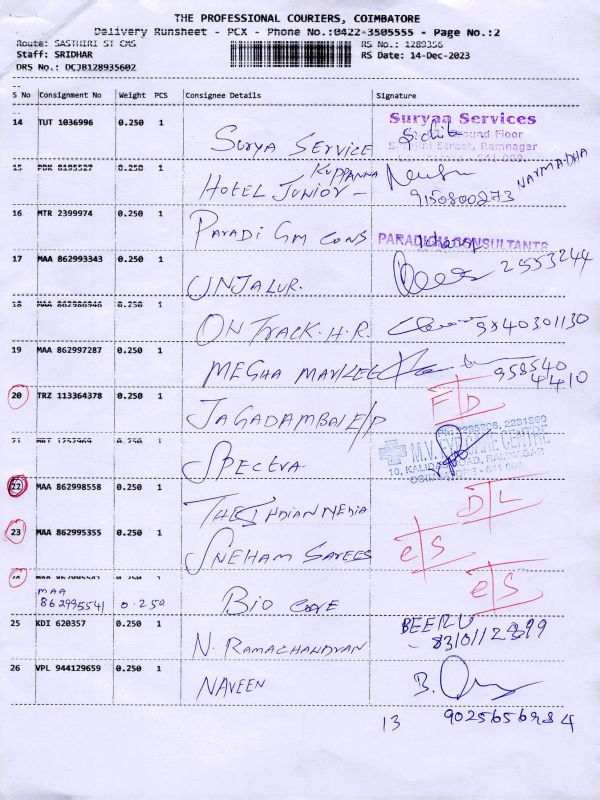 THE PROFESSIONAL COURIERS, COIMBATORE
Delivery Runsheet - PCX - Phone No.:0422-3505555 - Page No.:2
Route: SASTHIRI ST CMS RS No.: 1289356
Staff: SRIDHAR RS Date: 14-Dec-2023
DRS No.: DCJB128935602
S No Consignment No Weight PCS Consignee Details Signature
14 TUT 1036996 0.250 1 SURYA SERVICE Suryaa Services
Ground Floor
Street, Ramnagar
15 PBK 8195527 0.250 1 HOTEL JUNIOR - KUPPANNA NARMADHA
9150800273
16 MTR 2399974 0.250 1 PARADIGM CONS PARADIGM CONSULTANTS
17 MAA 862993343 0.250 1 UNJALUR. 2553244
18 MAA 862986946 0.250 1 ON TRACK.H.R. 9840301130
19 MAA 862997287 0.250 1 MEGHA MARKET 958540
4410
20 TRZ 113364378 0.250 1 JAGADAMBAL E/P F D
21 MRT 1252969 0.250 1 SPECTRA M.V. EYE CARE CENTRE
10, KALIDAS ROAD, RAMNAGAR
22 MAA 862998558 0.250 1 THE INDIAN MEDIA D L
23 MAA 862995355 0.250 1 SNEHAM SAREES C S
24 MAA 862995541 0.250 1 BIO CARE C S
MAA
862995541 0.250
25 KDI 620357 0.250 1 N. RAMACHANDRAN BEERU
- 8310112899
26 VPL 944129659 0.250 1 NAVEEN B.
13 9025656984